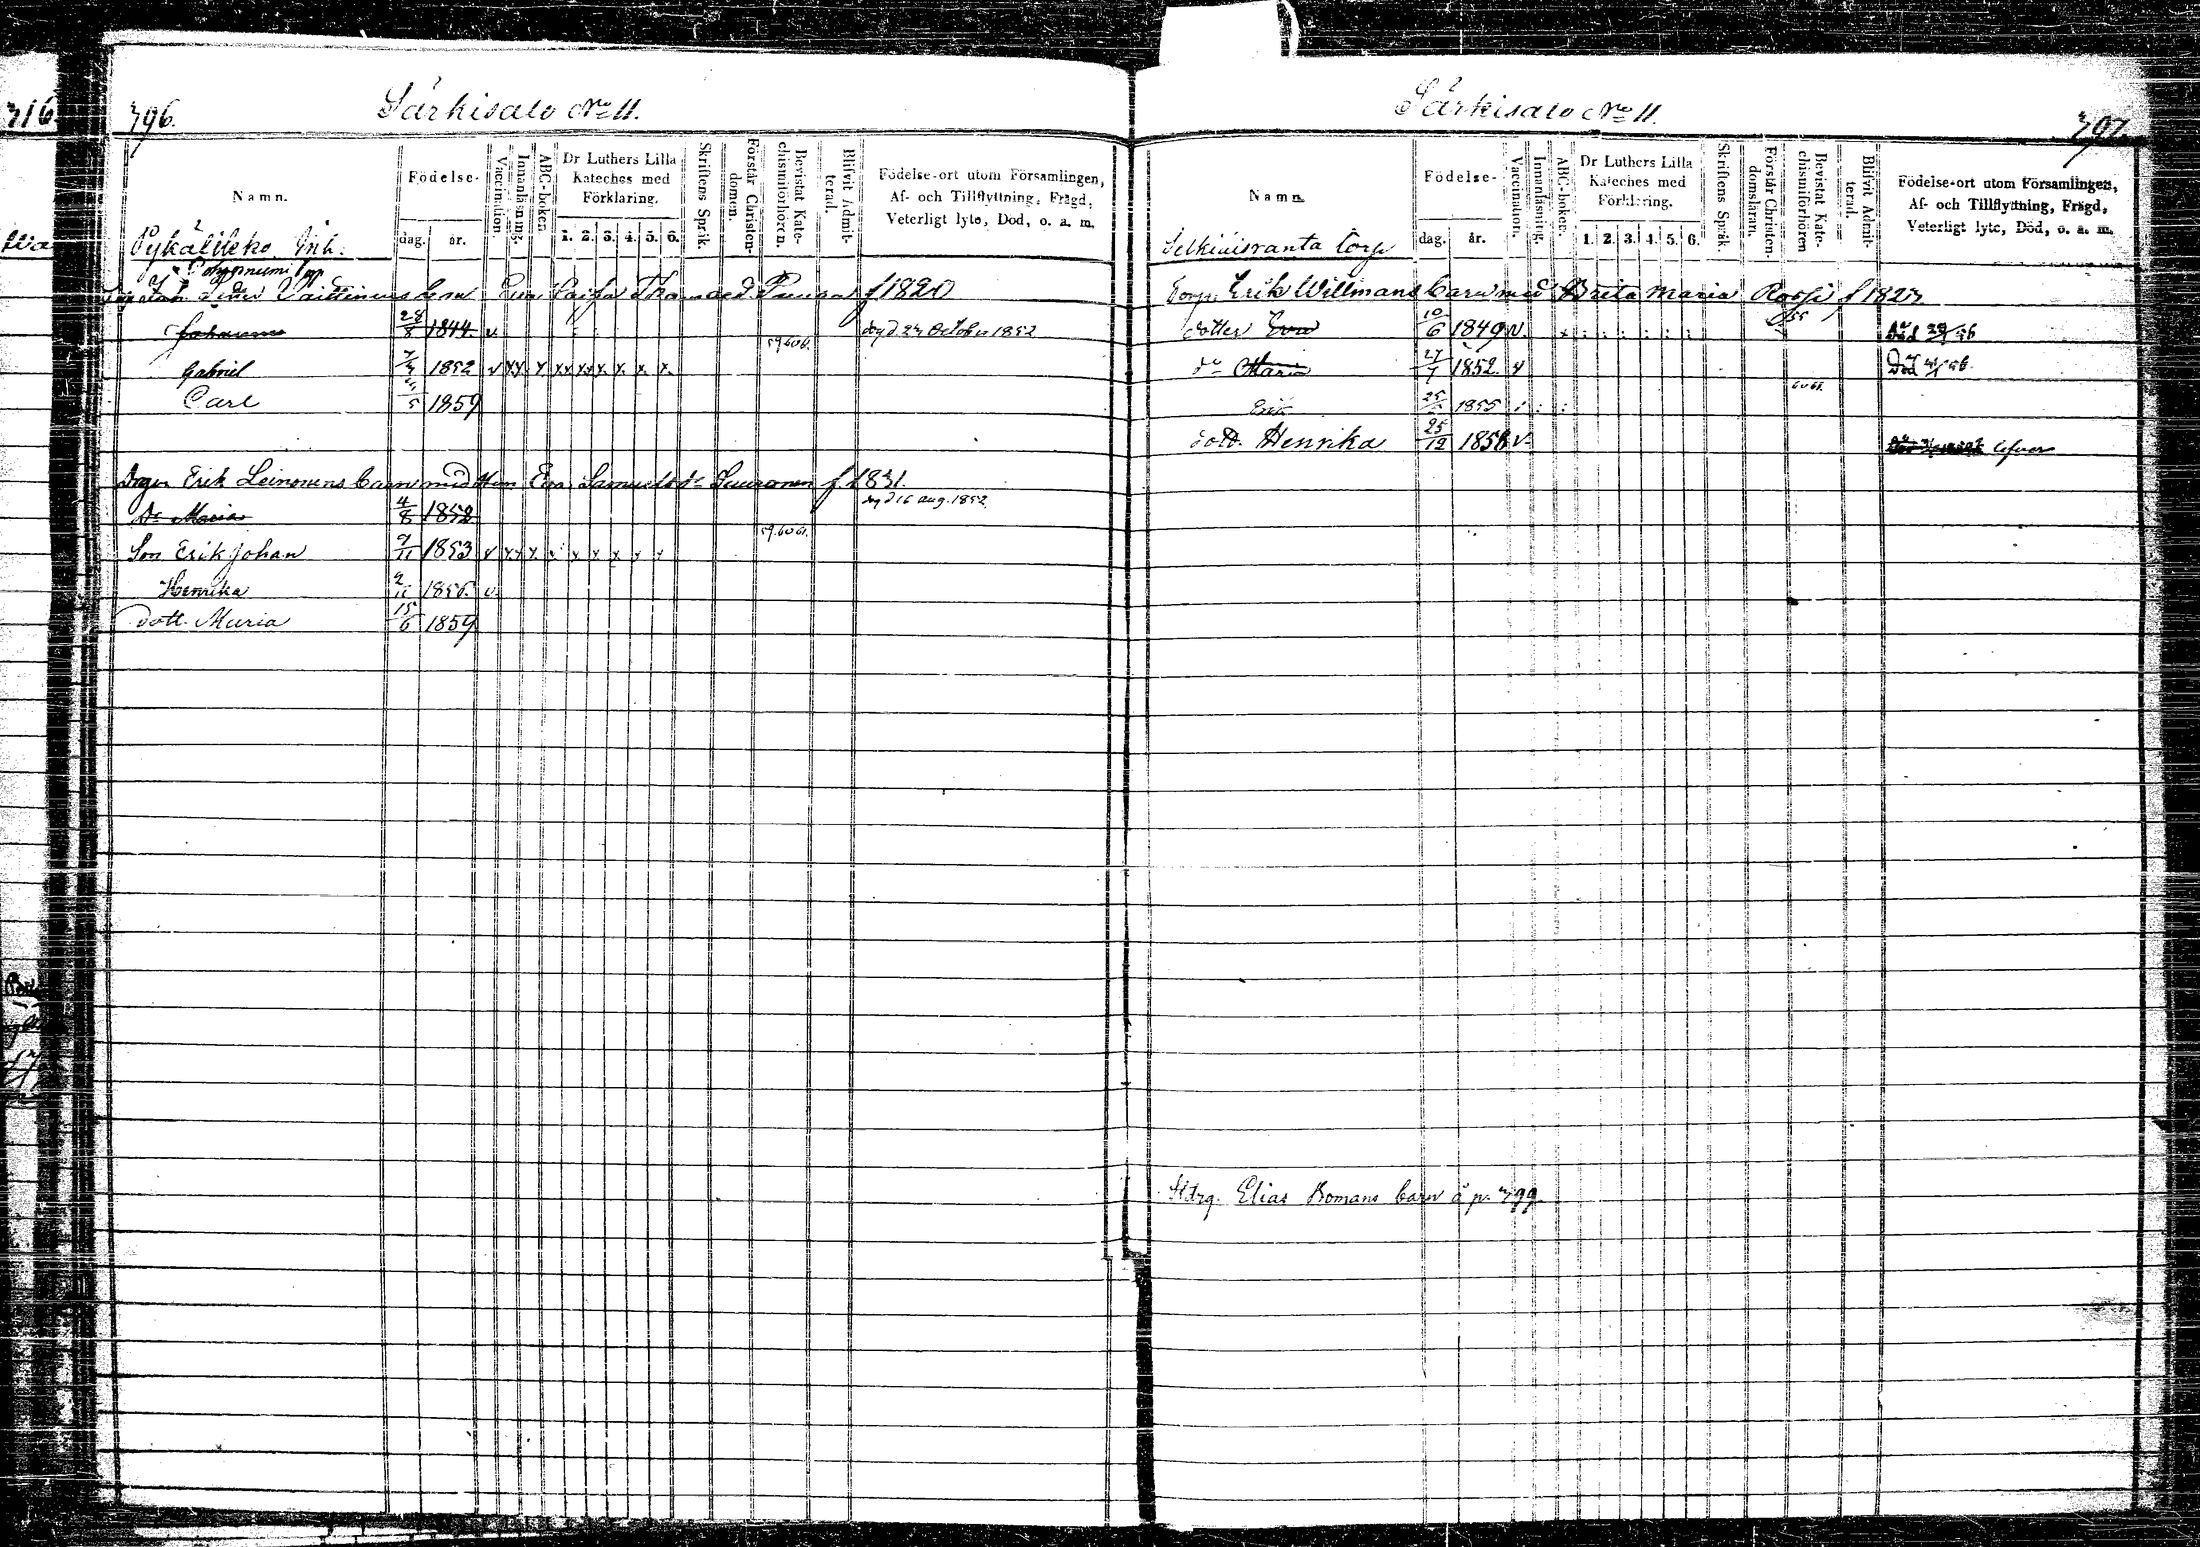 796.
Särkisalo No 11.
Namn.
Födelse-
dag. år.
Vaccination.
Innanläsning.
ABC-boken.
Dr Luthers Lilla
Kateches med
Förklaring.
1. 2. 3. 4. 5. 6.
Skriftens Språk.
Förstår Christen-
domen.
Bevistat Kate-
chismiförhören.
Blifvit Admit-
terad.
Födelse-ort utom Församlingen,
Af- och Tillflyttning, Frägd,
Veterligt lyte, Död, o. a. m.
Inh.
f 1820
Johannes 28/8 1844. v död 27 October 1852
59.60.61.
Gabriel 1852 v x x x x x x x x x x
Carl /5 1859
Erik Leinonens barn med Eva Samuelsd:r Suuronen f. 1831.
Dr Maria 4/8 1852 död 16 aug. 1852
59.60.61.
Son Erik Johan 9/11 1853 v x x x x x x x x x
Henrika 2/11 1856. v.
dott. Maria 15/6 1859
Särkisalo No 11.
797.
Namn.
Födelse-
dag. år.
Vaccination.
Innanläsning.
ABC-boken.
Dr Luthers Lilla
Kateches med
Förklaring.
1. 2. 3. 4. 5. 6.
Skriftens Språk.
Förstår Christen-
domsläran.
Bevistat Kate-
chismiförhören
Blifvit Admit-
terad.
Födelse-ort utom Församlingen,
Af- och Tillflyttning, Frägd,
Veterligt lyte, Död, o. a. m.
Torp
Torp. Erik Willmans barn med Brita Maria Rossi f 1827
dotter Eva 10/6 1849 v. Död 29/ 56
do Maria 27/7 1852. v Död 56.
60 61.
Erik 25/ 1855
dott. Henrika 25/12 1858 v. lefver
Elias Bomans barn å p. 799